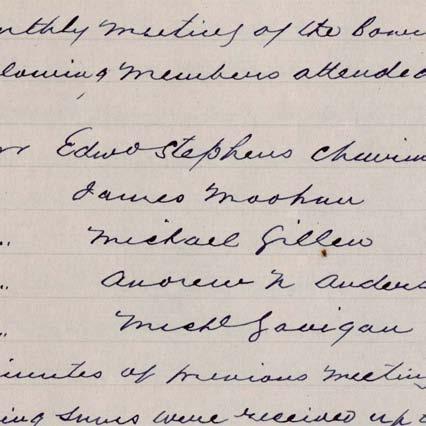 onthly Meeting of the Boar
llowing Members attended
Mr Edwd Stephens Chairm
James Moohan
" Michael Gillen
" Andrew N Anders
" Michl Gavigan
inutes of previous Meeting
ing sums were received up